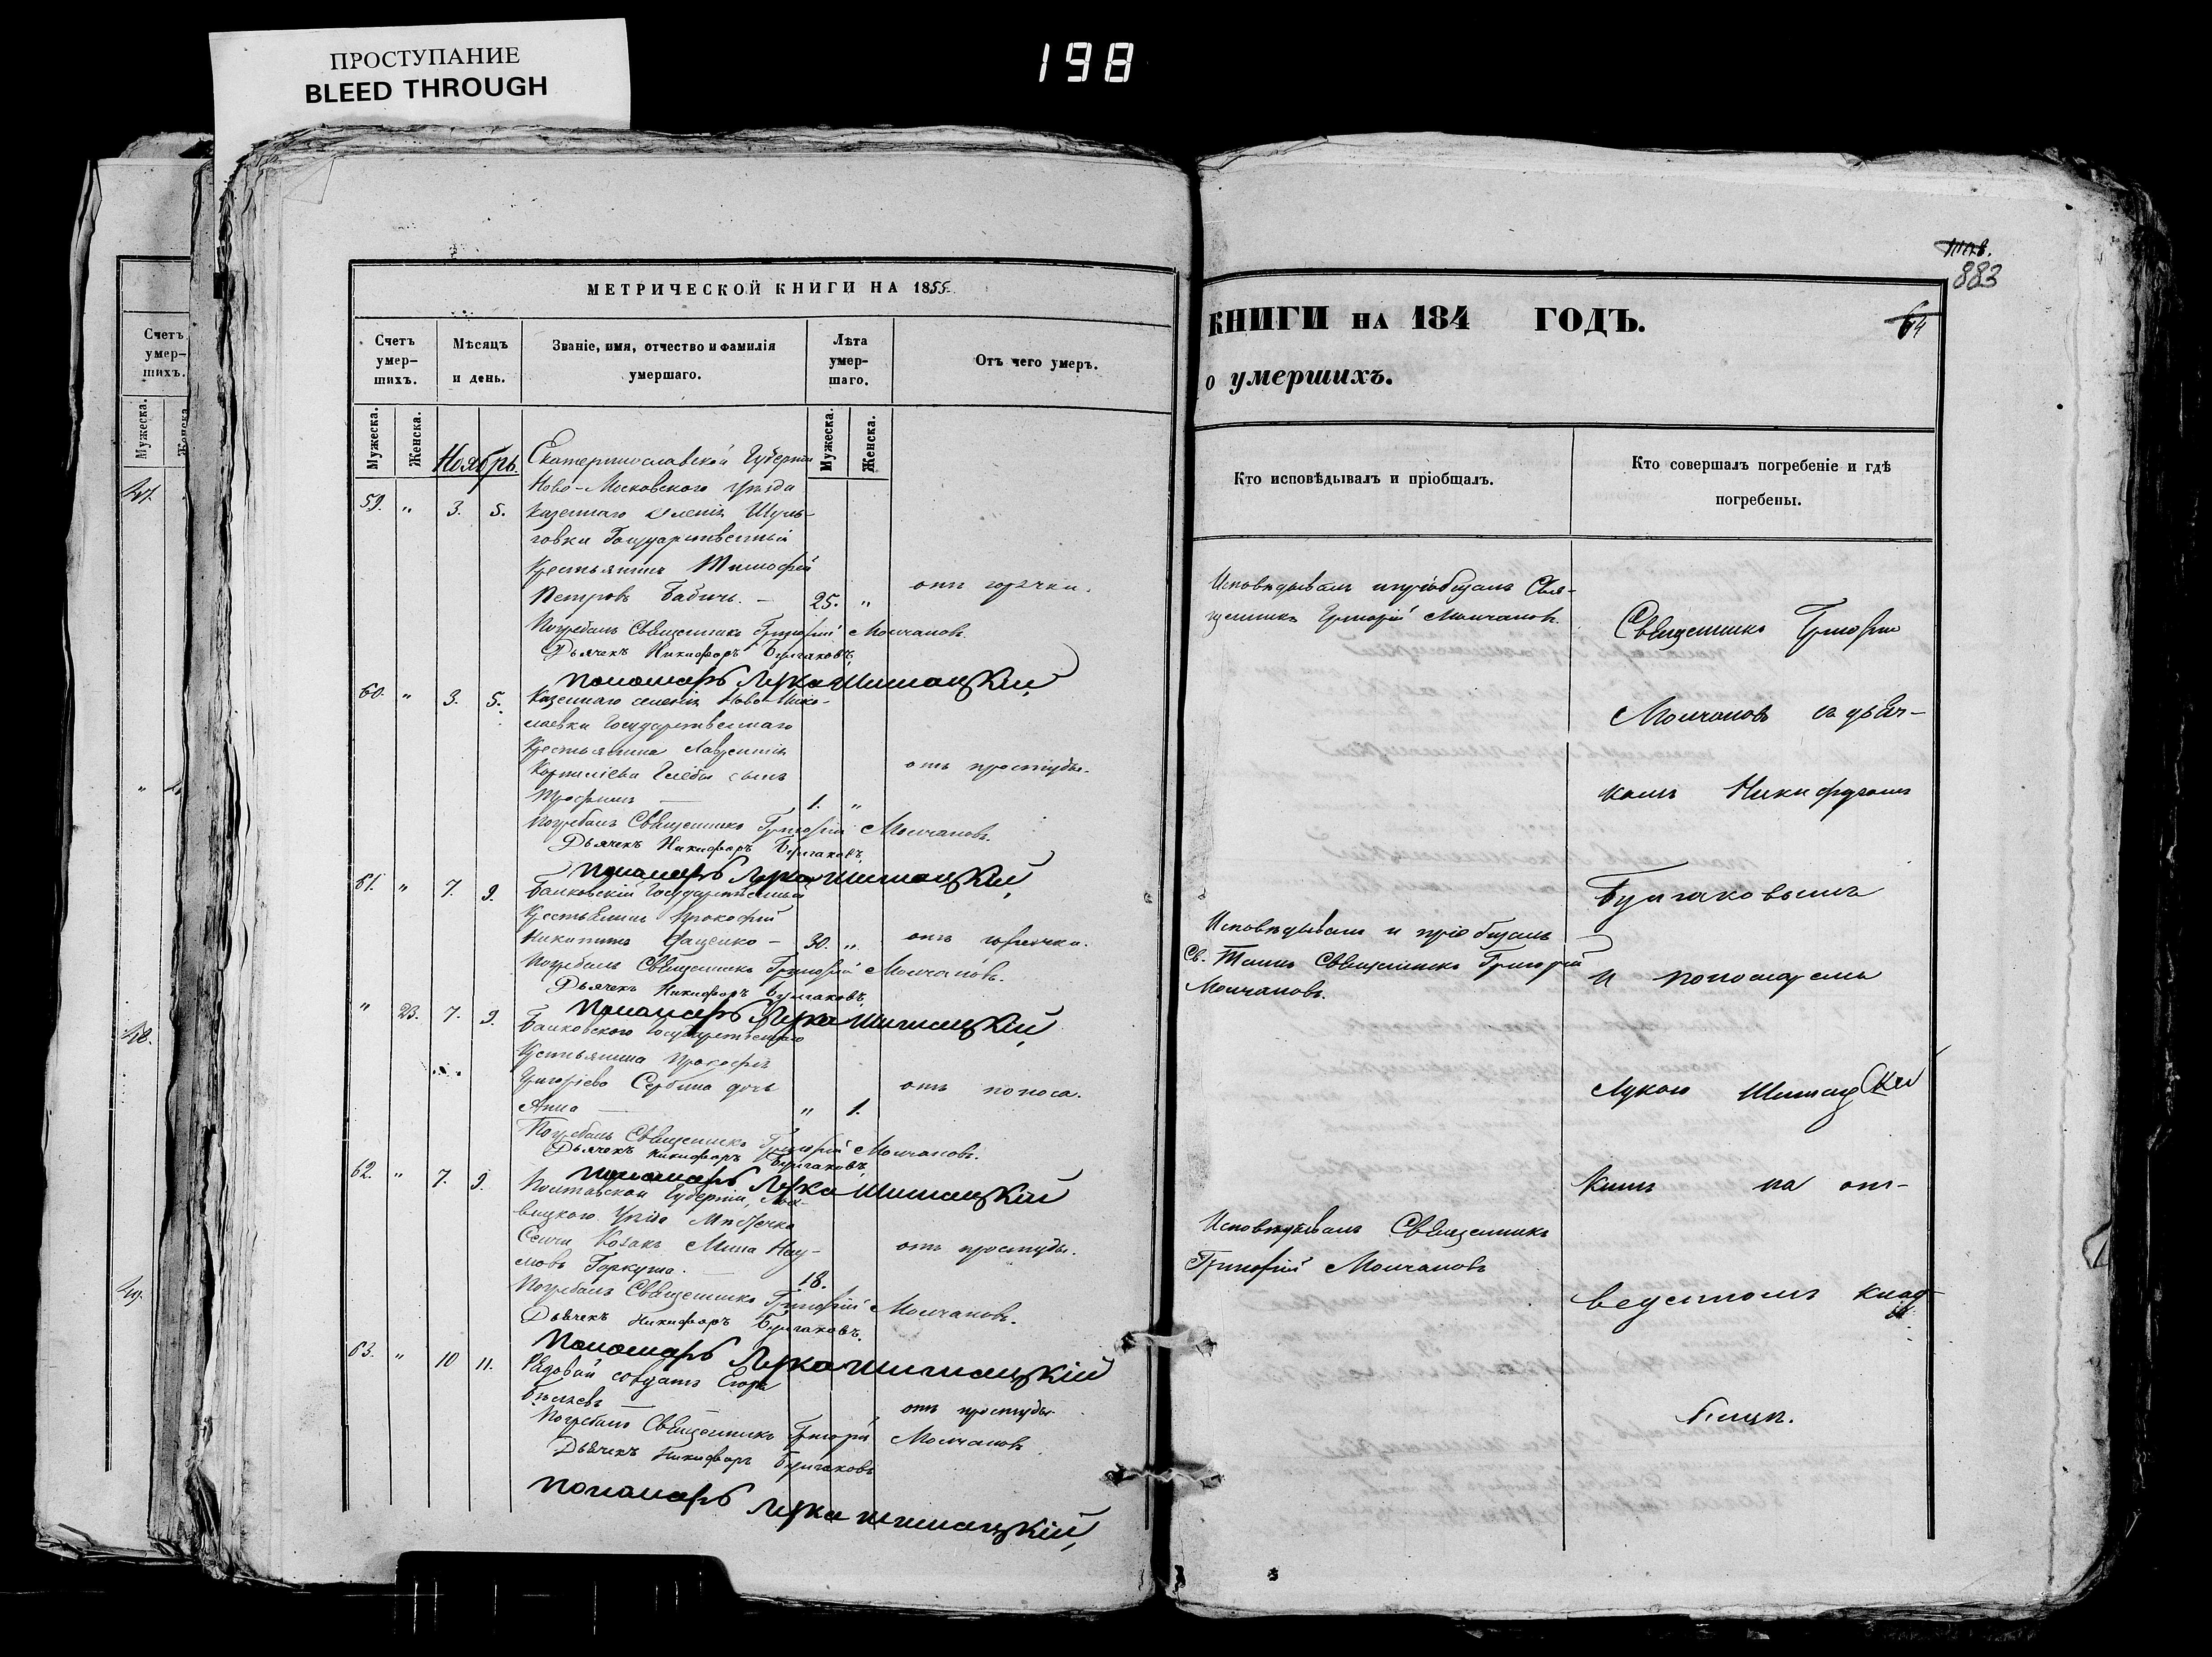 ПРОСТУПАНИЕ
BLEED THROUGH
198
Счетъ
умер-
шихъ.
Мужеска.
47.
48.
49.
МЕТРИЧЕСКОЙ КНИГИ НА 1855.
Счетъ умер-шихъ.
Мѣсяцъ и день.
Званіе, имя, отчество и фамилія умершаго.
Лѣта умер-шаго.
Отъ чего умеръ.
Мужеска. Женска.
Мужеска. Женска.
Ноябрь. Екатеринославской Губерніи
Ново-Московского уѣзда
59. " 3. 5. казеннаго селенія Шуль-
говки Государственный
Крестьянинъ Тимофей
Петровъ Бабичь. — 25. " отъ горячки.
Погребалъ Священникъ Григорій Молчановъ.
Дьячекъ Никифоръ Булгаковъ,
пономарь Лука Шишацкій,
60. " 3. 5. Казеннаго селенія Ново-Нико-
лаевки Государственнаго
Крестьянина Лаврентія
Корнилiева Глебы сынъ отъ простуды.
Трофимъ — 1. "
Погребалъ Священникъ Григорій Молчановъ.
Дьячекъ Никифоръ Булгаковъ,
пономарь Лука Шишацкій,
61. " 7. 9. Государственный
Крестьянинъ Прокофій
Никитинъ — 30. " отъ горячки.
Погребалъ Священникъ Григорій Молчановъ.
Дьячекъ Никифоръ Булгаковъ,
пономарь Лука Шишацкій,
" 23. 7. 9. Государственнаго
Крестьянина Прокофія
Григорiева Сербина дочь отъ поноса.
Анна — " 1.
Погребалъ Священникъ Григорій Молчановъ.
Дьячекъ Никифоръ Булгаковъ,
пономарь Лука Шишацкій
62. " 7. 9. Полтавской Губерніи, Лох-
вицкого Уѣзда Мѣстечка
Сенчи Козакъ Мина Нау-
мовъ Гаркуша. — 18. отъ простуды.
Погребалъ Священникъ Григорій Молчановъ.
Дьячекъ Никифоръ Булгаковъ,
пономарь Лука Шишацкій
63. " 10 11. Рядовой солдатъ Егоръ
Бѣляевъ — отъ простуды.
Погребалъ Священникъ Григорій Молчановъ.
Дьячекъ Никифоръ Булгаковъ
пономарь Лука Шишацкій,
883
64
КНИГИ НА 184 ГОДЪ.
о умершихъ.
Кто исповѣдывалъ и пріобщалъ.
Кто совершалъ погребеніе и гдѣ
погребены.
Исповѣдывалъ и пріобщалъ Свя-
щенникъ Григорій Молчановъ.
Исповѣдывалъ и пріобщалъ
Св. Таинъ Священникъ Григорій
Молчановъ.
Исповѣдывалъ Священникъ
Григорій Молчановъ
Священникъ Григорій
Молчановъ съ дьяч-
комъ Никифоромъ
Булгаковымъ
и пономаремъ
Лукою Шишацки
кимъ на от-
веденномъ клад-
бищѣ.